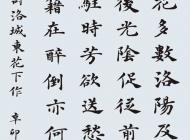 花多數洛陽及
後光陰促從
駐時芳欲送愁
籍在醉倒亦何
洛城東花下作 辛卯